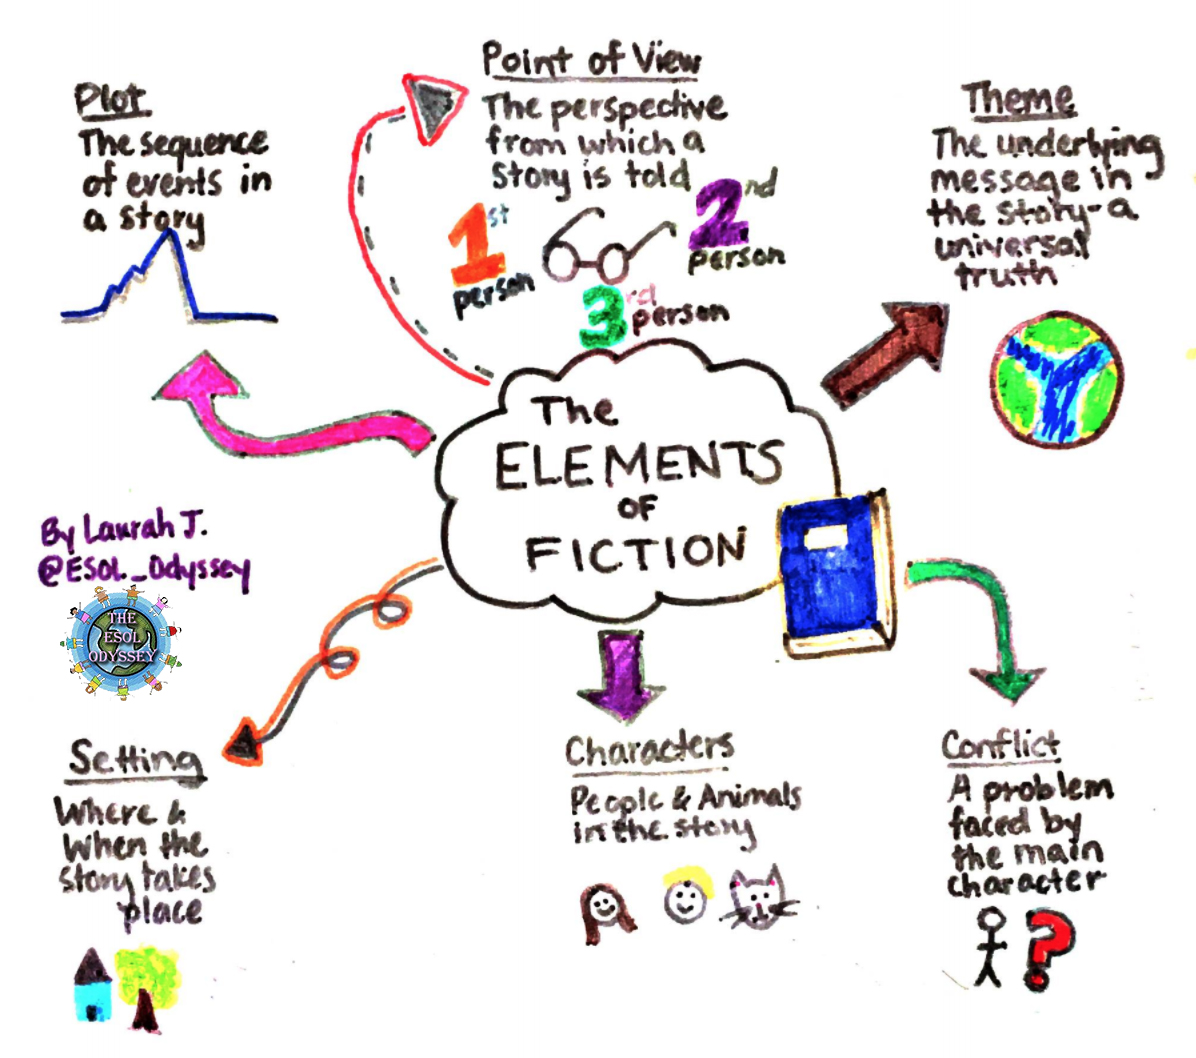 Plot
The sequence
of events in
a story
Point of View
The perspective
from which a
Story is told
1st
person
2nd
person
3rd
person
Theme
The underlying
message in
the story-a
universal
truth
The
ELEMENTS
OF
FICTION
By Laurah J.
@ESOL_Odyssey
THE
ESOL
ODYSSEY
Setting
Where &
When the
story takes
place
Characters
People & Animals
in the story
Conflict
A problem
faced by
the main
character
?